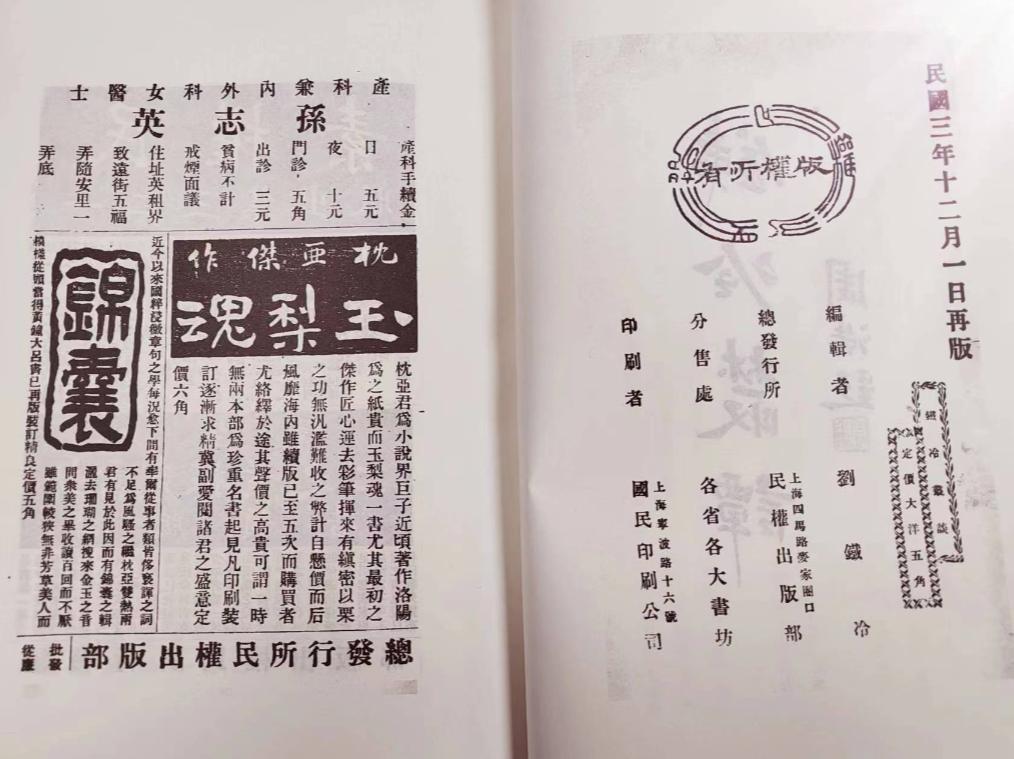 民國三年十二月一日再版
鐵冷叢談
定價大洋五角
版權所有
編輯者 劉鐵冷
總發行所 上海四馬路麥家圈口 民權出版部
分售處 各省各大書坊
印刷者 上海寧波路十六號 國民印刷公司
產科兼內外科女醫士
孫志英
產科手續金
日 五元
夜 十元
門診 五角
出診 三元
貧病不計
戒煙面議
住址英租界
致遠街五福
弄隨安里一
弄底
枕亞傑作
玉梨魂
枕亞君爲小說界巨子近頃著作洛陽
爲之紙貴而玉梨魂一書尤其最初之
傑作匠心運去彩筆揮來有縝密以栗
之功無汎濫難收之弊計自懸價而后
風靡海內雖續版已至五次而購買者
尤絡繹於途其聲價之高貴可謂一時
無兩本部爲珍重名書起見凡印刷裝
訂逐漸求精冀副愛閱諸君之盛意定
價六角
錦囊
近今以來國粹浸微章句之學每況愈下間有
率爾從事者類皆侈褻諢之詞
不足爲風騷之繼枕亞雙熱兩
君有見於此因而有錦囊之輯
灑去珊瑚之網搜來金玉之音
問衆美之畢收讀百回而不厭
雖範圍較狹無非芳草美人而
模樣從頭當得黃鐘大呂書已再版裝訂精良定價五角
總發行所民權出版部
批發從廉